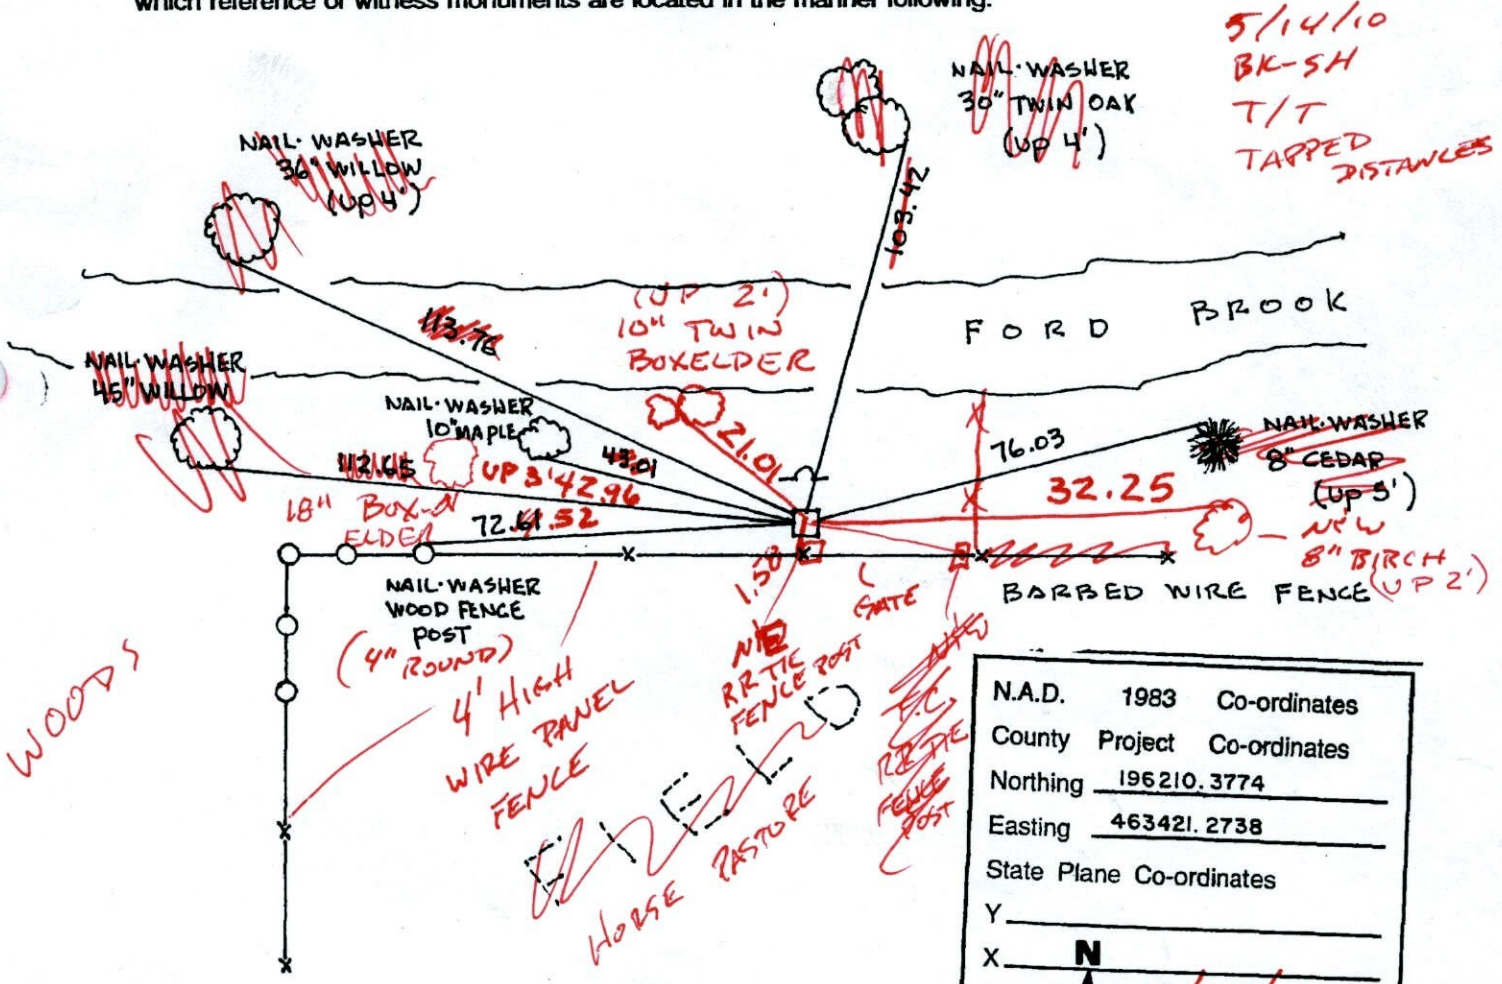 which reference or witness monuments are located in the manner following:
5/14/10
BK-SH
T/T
TAPPED
DISTANCES
NAIL·WASHER
30" TWIN OAK
(UP 4')
NAIL·WASHER
36" WILLOW
(UP 4')
103.42
113.76
(UP 2')
10" TWIN
BOXELDER
FORD BROOK
NAIL·WASHER
45" WILLOW
NAIL·WASHER
10" MAPLE
21.01
76.03
NAIL·WASHER
8" CEDAR
(UP 5')
43.01
112.65
UP 3' 42.96
32.25
18" BOX-
ELDER
72.61 .52
NEW
8" BIRCH
(UP 2')
1.50
GATE
BARBED WIRE FENCE
NAIL·WASHER
WOOD FENCE
POST
(4" ROUND)
4' HIGH
WIRE PANEL
FENCE
RR TIE
FENCE POST
RR TIE
FENCE
POST
WOODS
FIELD
HORSE PASTORE
N.A.D. 1983 Co-ordinates
County Project Co-ordinates
Northing 196210.3774
Easting 463421.2738
State Plane Co-ordinates
Y
X
N